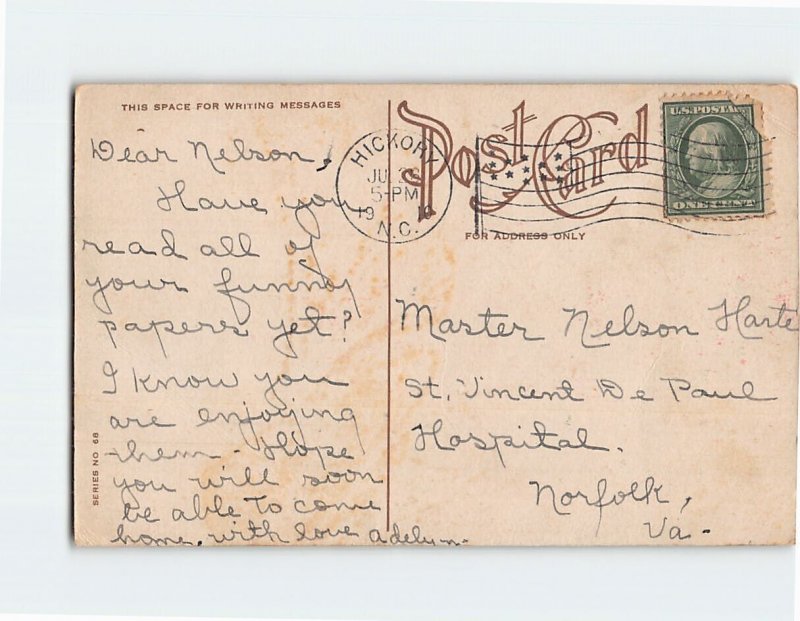 THIS SPACE FOR WRITING MESSAGES
Dear Nelson,
Have you
read all of
your funny
papers yet?
I know you
are enjoying
them. Hope
you will soon
be able to come
home, with love Adelyn.
SERIES NO 68
Post Card
FOR ADDRESS ONLY
HICKORY
5-PM
N.C.
U.S. POSTA
ONE CENT
Master Nelson Harte
St. Vincent De Paul
Hospital.
Norfolk,
Va.